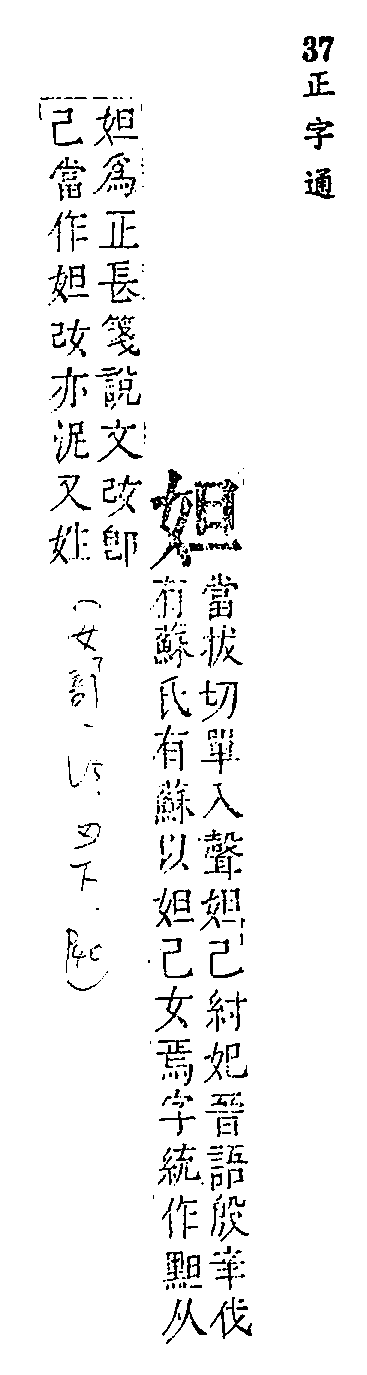 37正字通
妲
當拔切單入聲妲己紂妃晉語殷辛伐
有蘇氏有蘇以妲己女焉字統作䵣从
妲爲正長箋說文妀卽
己當作妲妀亦泥又姓
（女部、四下、）